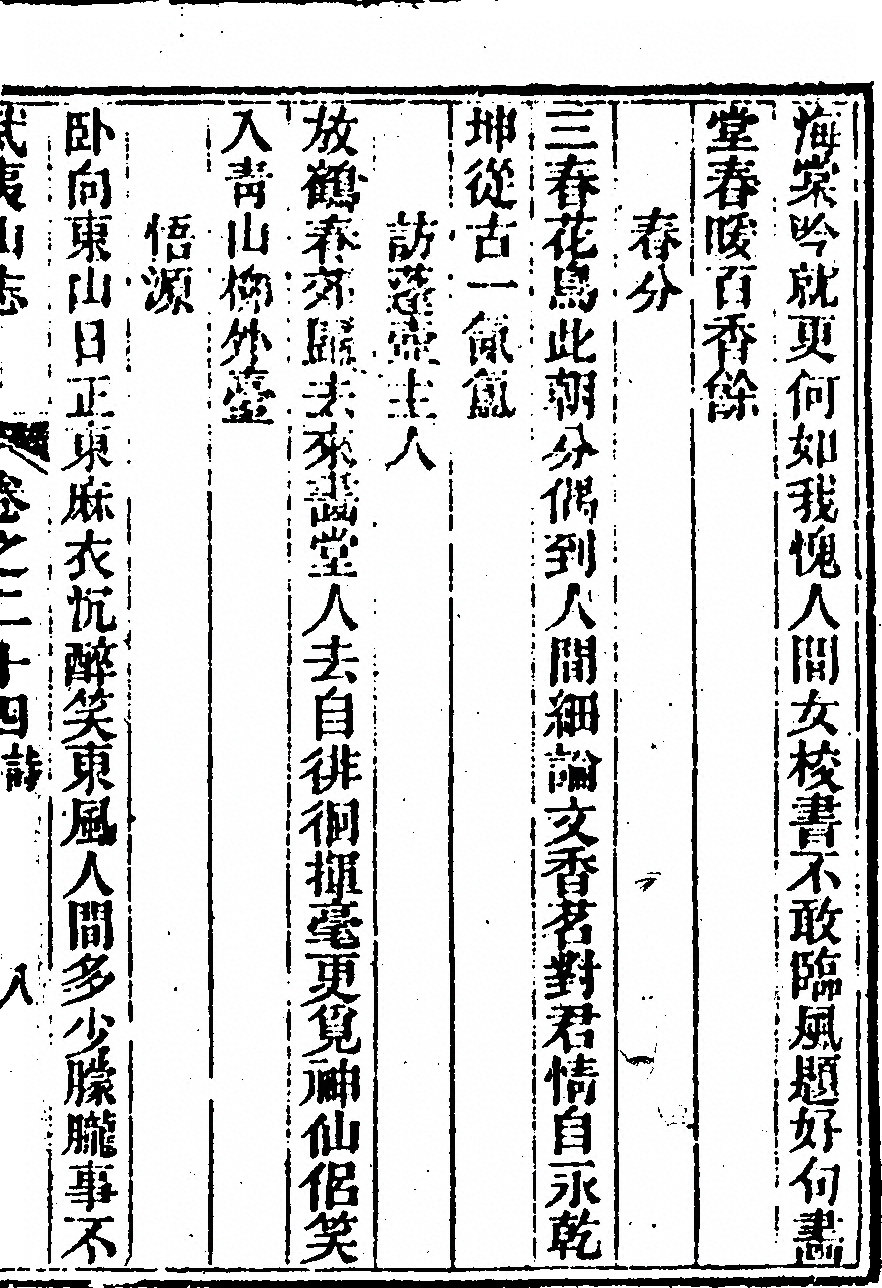 海棠吟就更何如我愧人間女校書不敢臨風題好句畫
堂春暖百香餘
春分
三春花鳥此朝分偶到人間細論文香茗對君情自永乾
坤從古一氤氳
訪蓬壺主人
放鶴春郊歸去來畫堂人去自徘徊揮毫更覓神仙侶笑
入青山柳外臺
悟源
卧向東山日正東麻衣沉醉笑東風人間多少朦朧事不
武夷山志 卷之二十四詩 八